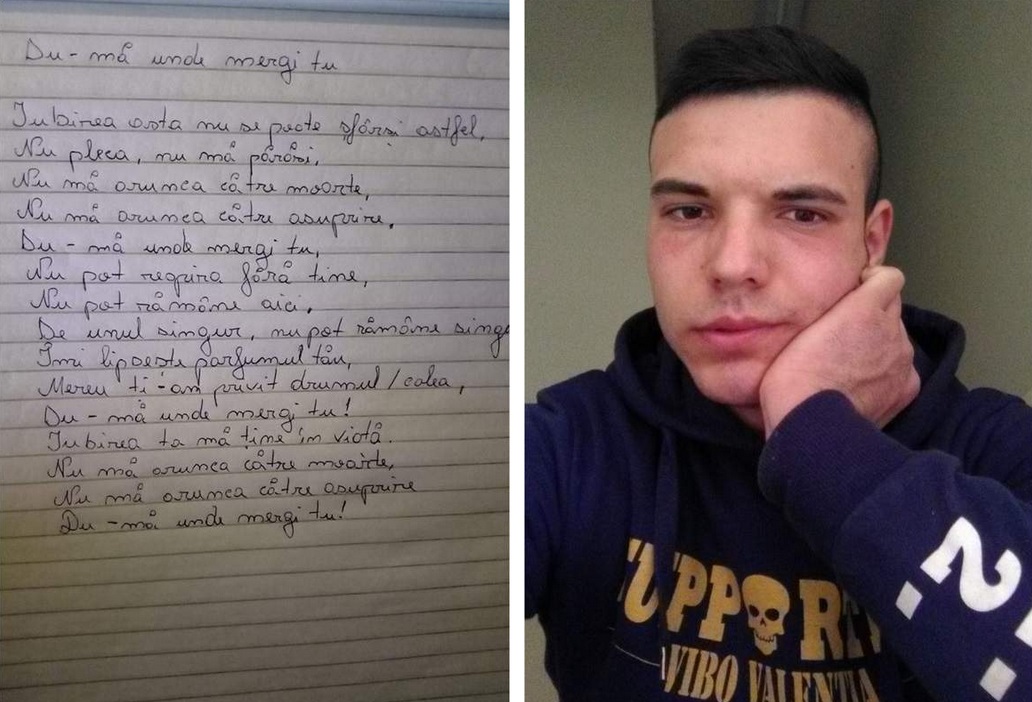 Du-må unde mergi tu
Iubirea asta nu se poate sfârsi astfel,
Nu pleca, nu mă părăsi,
Nu mă arunca către moarte,
Nu mă arunca către asuprire,
Du-mă unde mergi tu,
Nu pot respira fără tine,
Nu pot rămâne aici,
De unul singur, nu pot rămâne sing
Îmi lipseste parfumul tău,
Mereu ti-am privit drumul/calea,
Du-mă unde mergi tu!
Iubirea ta mă tine în viată.
Nu mă arunca către moarte,
Nu mă arunca către asuprire
Du-mă unde mergi tu!
SUPPORT
VIBO VALENTIA
.2.